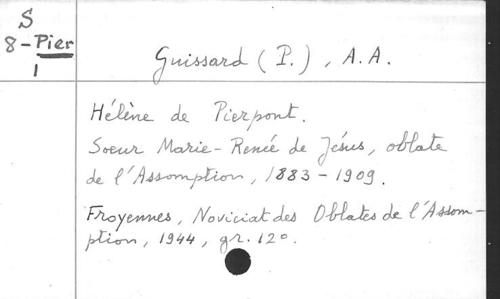 S
8-Pier
1
Guissard (P.), A.A.
Hélène de Pierpont.
Soeur Marie-Renée de Jésus, oblate
de l'Assomption, 1883-1909.
Froyennes, Noviciat des Oblates de l'Assom-
ption, 1944, gr. 12°.